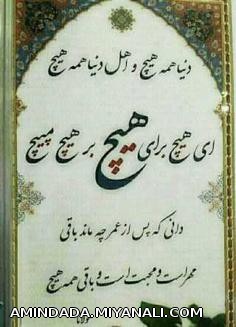 دنیا همه هیچ و اهل دنیا همه هیچ
ای هیچ برای هیچ بر هیچ مپیچ
دانی که پس از عمر چه ماند باقی
مهر است و محبت است و باقی همه هیچ
مولانا
AMINDADA.MIYANALI.COM